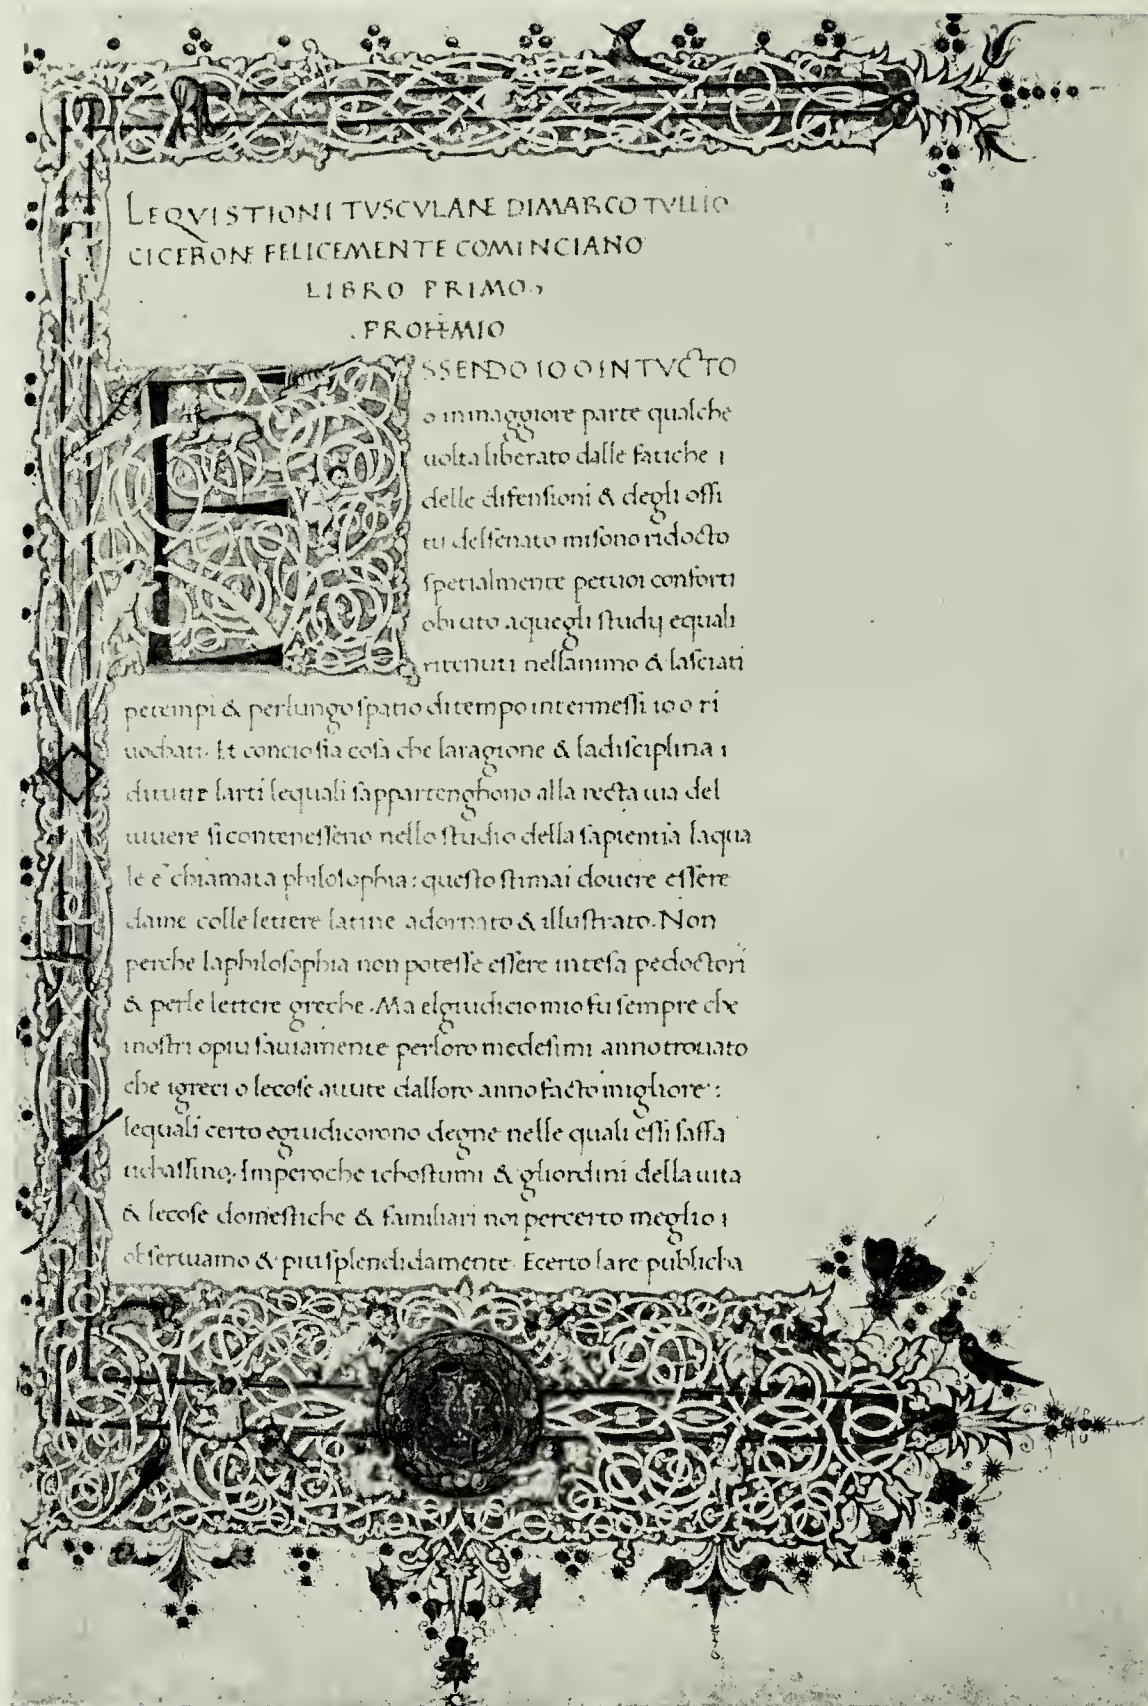 LEQVISTIONI TVSCVLANE DIMARCO TVLLIO
CICERONE FELICEMENTE COMINCIANO
LIBRO PRIMO
PROHEMIO
ESSENDO IO O IN TVCTO
o inmaggiore parte qualche
uolta liberato dalle fatiche
delle difensioni & degli offi
tii delsenato misono ridocto
spetialmente petuoi conforti
obruto aquegli studij equali
ritenuti nellanimo & lasciati
petempi & perlungo spatio ditempo intermessi io o ri
uochati. Et concio sia cosa che laragione & ladisciplina
ditutte larti lequali sappartenghono alla recta uia del
uiuere si contenesseno nello studio della sapientia laqua
le e chiamata philosophia: questo stimai douere essere
dame colle lettere latine adornato & illustrato. Non
perche laphilosophia non potesse essere intesa pedoctori
& perle lettere greche. Ma elgiudicio mio fu sempre che
inostri o piu sauiamente perloro medesimi anno trouato
che igreci o lecose auute dalloro anno facto migliore:
lequali certo egiudicorono degne nelle quali essi saffa
tichassino. Imperoche ichostumi & gliordini della uita
& lecose domestiche & familiari noi percerto meglio
obseruamo & piu splendidamente. Ecerto lare publicha